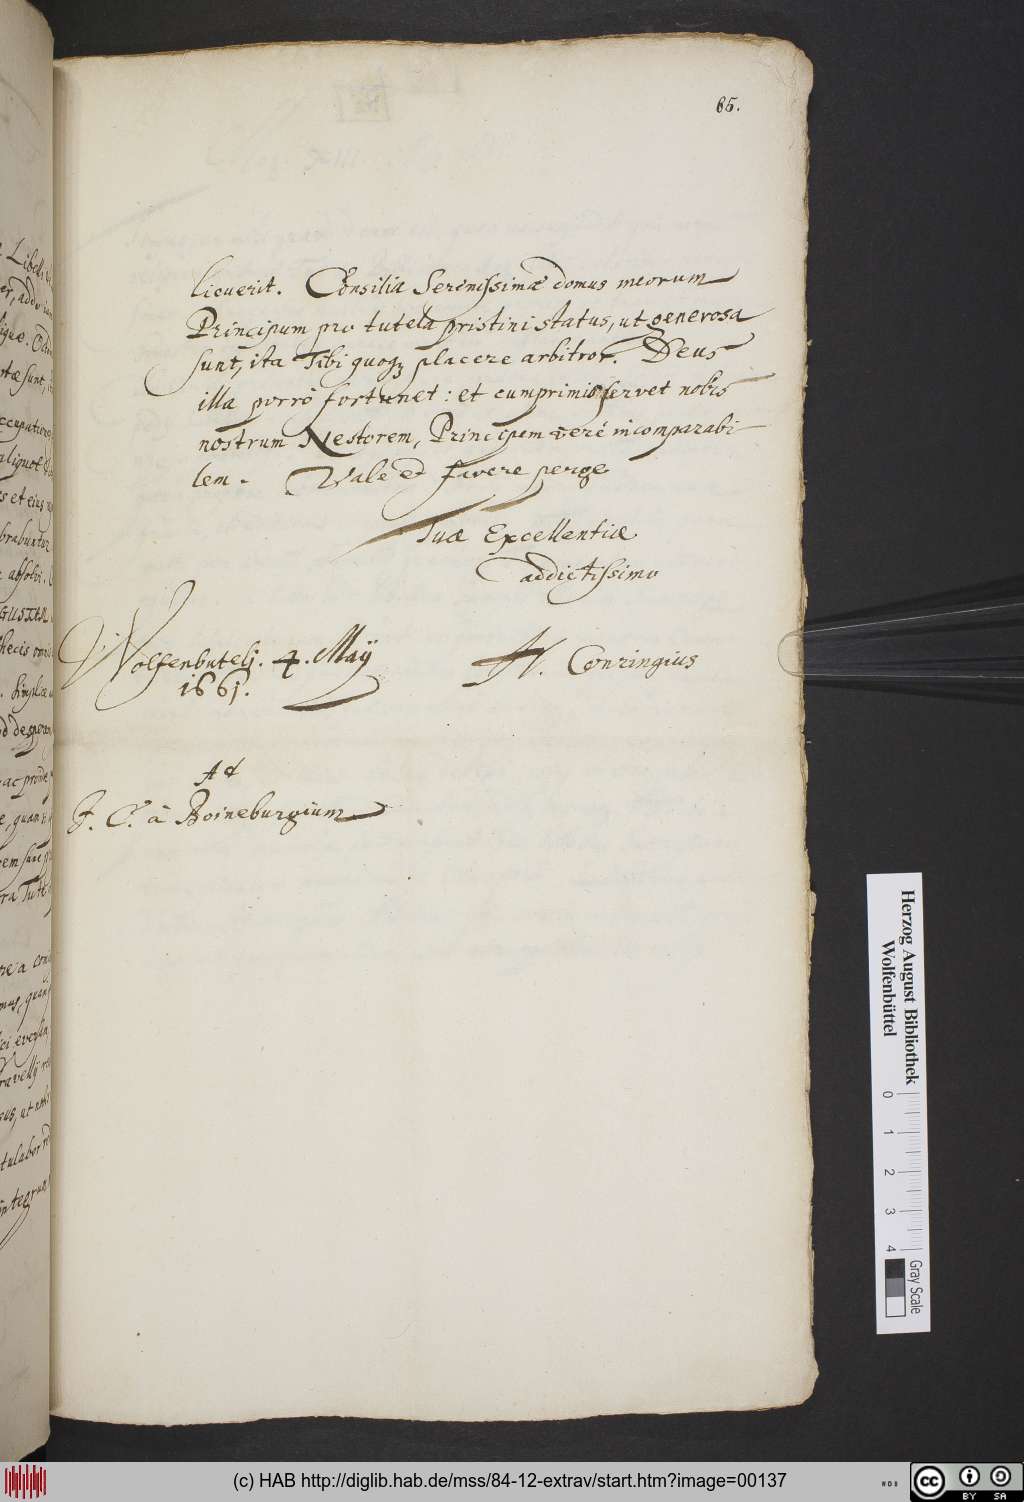 65.
licuerit. Consilia Serenissimæ domus meorum
Principum pro tutela pristini status, ut generosa
sunt, ita Tibi quoqꝫ placere arbitror. Deus
illa porrò fortunet: et cumprimis servet nobis
nostrum Nestorem, Principem verè incomparabi
lem. Vale et favere perge
Tuæ Excellentiæ
addictissimo
Wolfenbutelj. 4. Maij
1661.
H. Conringius
Ad
J. C. à Boineburgium
Herzog August Bibliothek
Wolfenbüttel
0 1 2 3 4
Gray Scale
(c) HAB http://diglib.hab.de/mss/84-12-extrav/start.htm?image=00137
cc BY SA